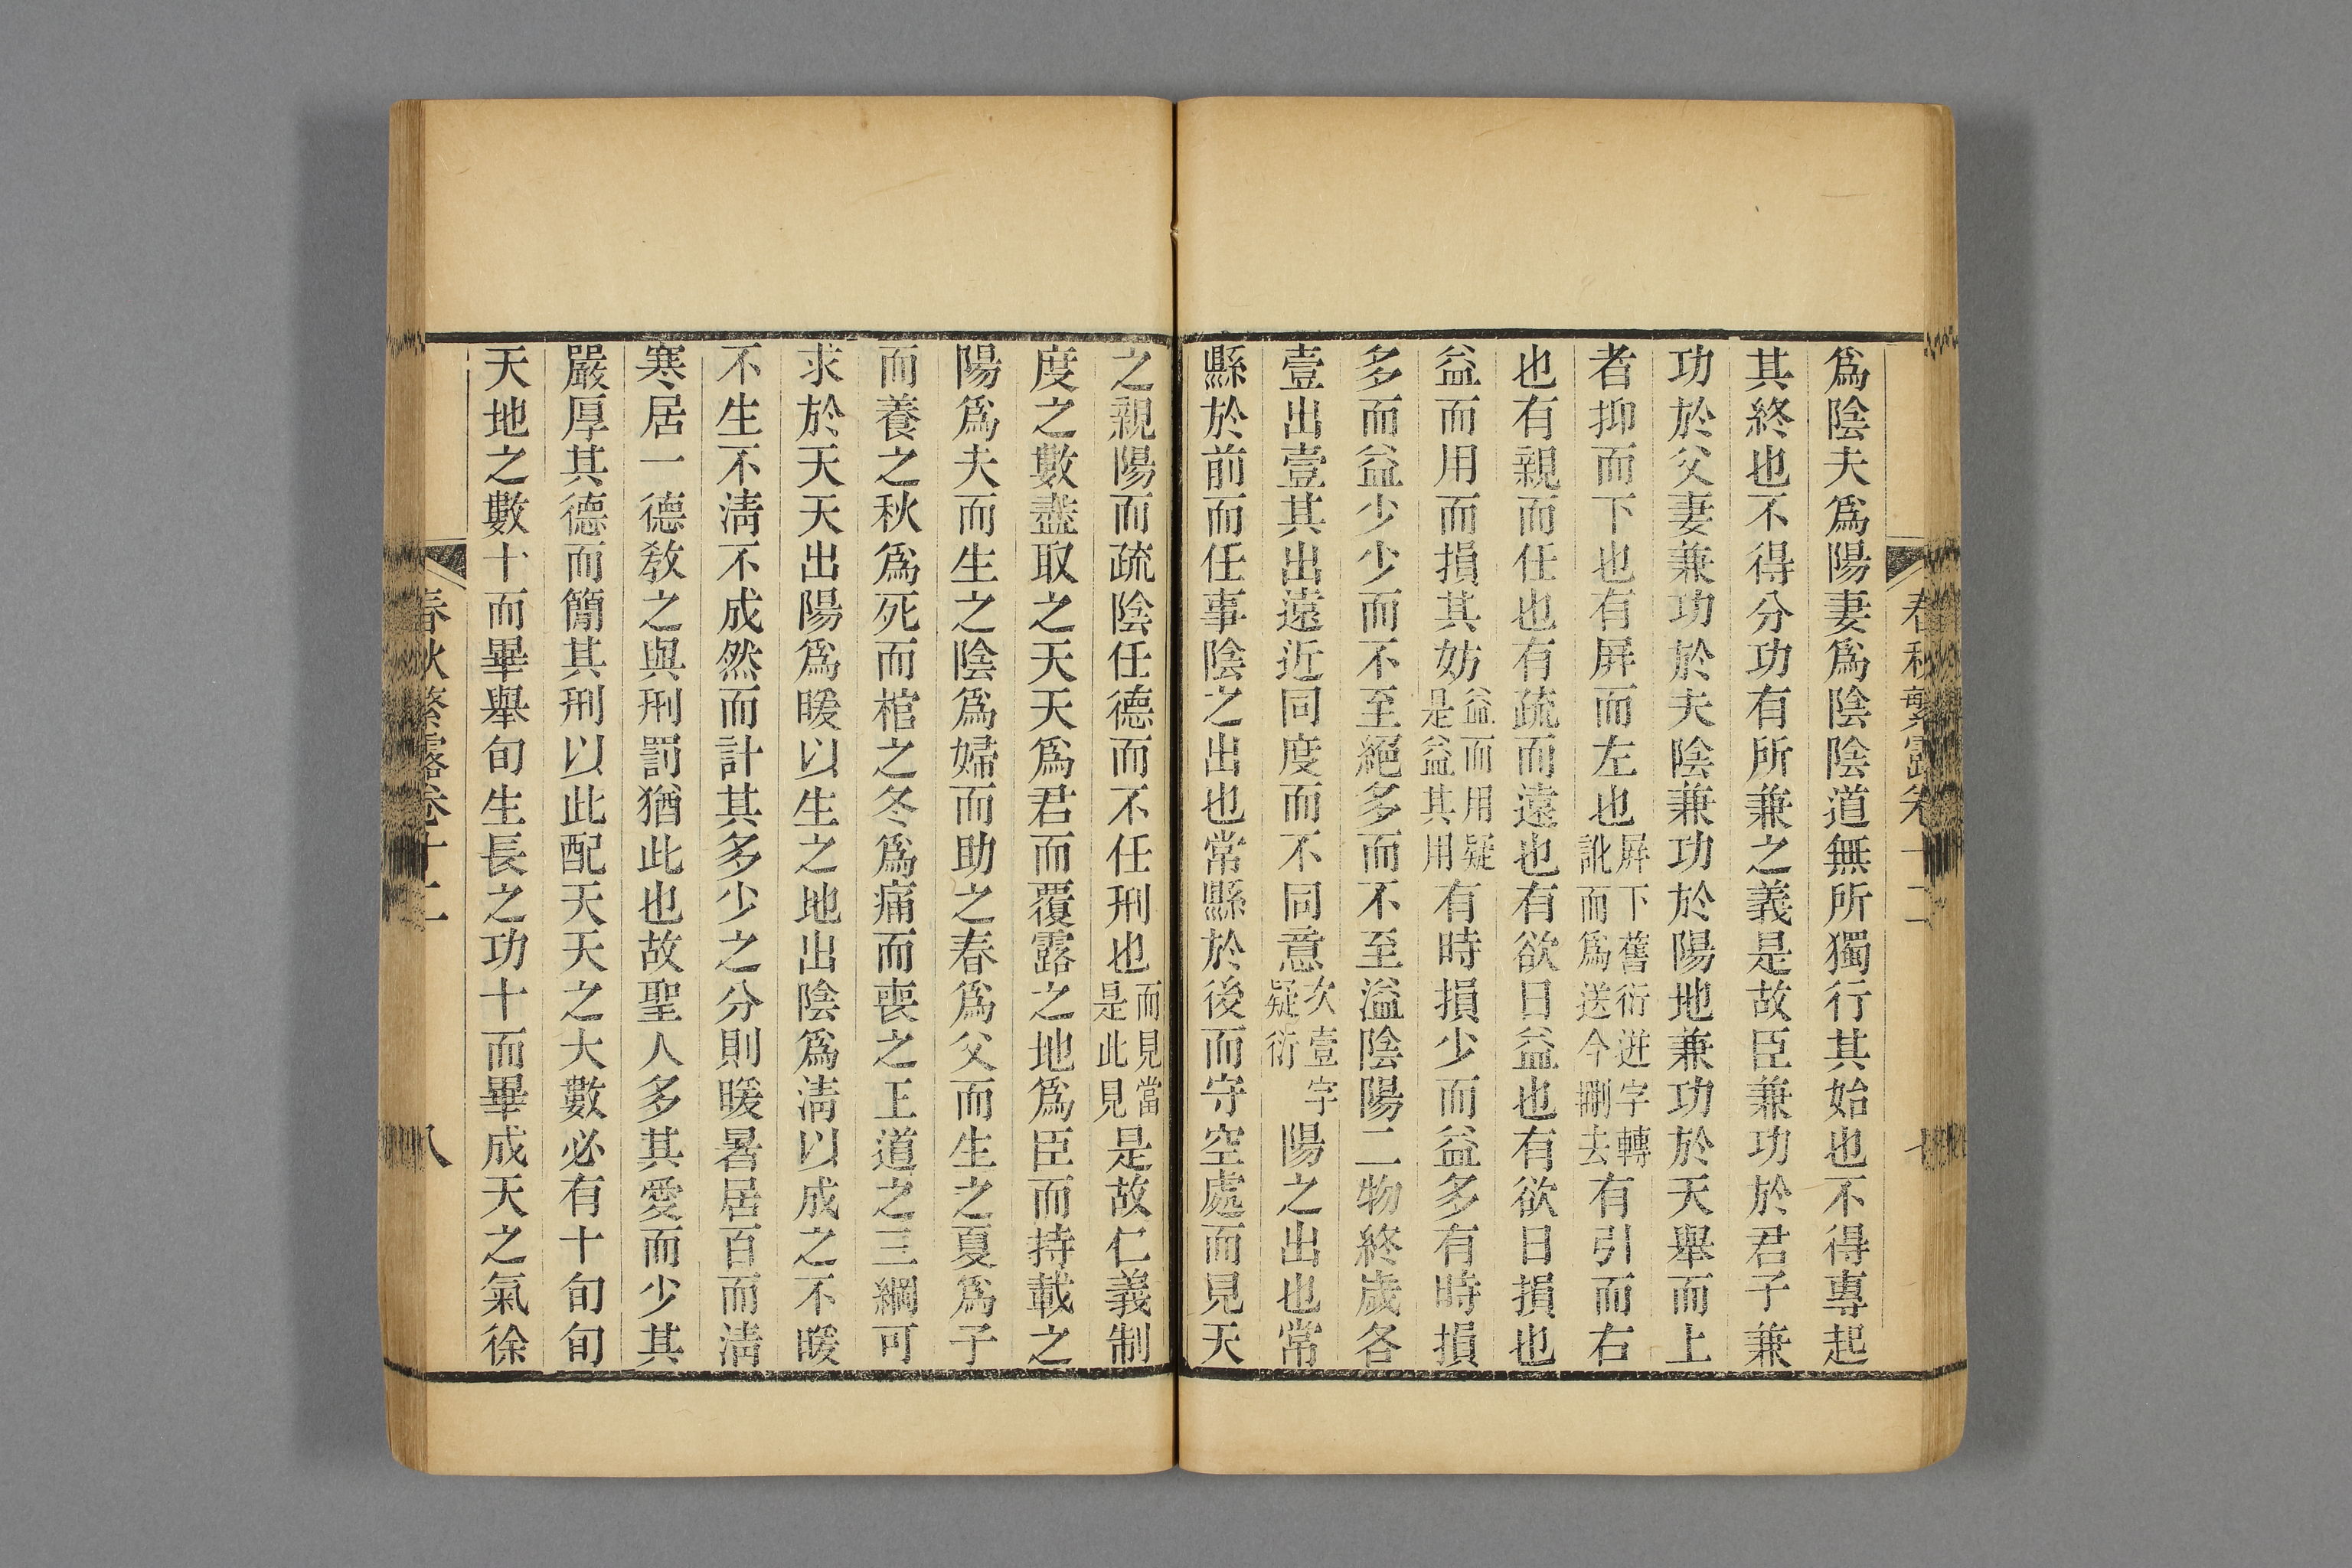 春秋繁露卷十二
爲陰夫爲陽妻爲陰陰道無所獨行其始也不得專起
其終也不得分功有所兼之義是故臣兼功於君子兼
功於父妻兼功於夫陰兼功於陽地兼功於天舉而上
者抑而下也有屏而左也屛下舊衍迸字轉訛而爲送今刪去有引而右
也有親而任也有疏而遠也有欲日益也有欲日損也
益而用而損其妨益而用疑是益其用有時損少而益多有時損
多而益少少而不至絕多而不至溢陰陽二物終歲各
壹出壹其出遠近同度而不同意次壹字疑衍陽之出也常
縣於前而任事陰之出也常縣於後而守空處而見天
之親陽而疏陰任德而不任刑也而見當是此見是故仁義制
度之數盡取之天天爲君而覆露之地爲臣而持載之
陽爲夫而生之陰爲婦而助之春爲父而生之夏爲子
而養之秋爲死而棺之冬爲痛而喪之王道之三綱可
求於天天出陽爲暖以生之地出陰爲淸以成之不暖
不生不淸不成然而計其多少之分則暖暑居百而淸
寒居一德敎之與刑罰猶此也故聖人多其愛而少其
嚴厚其德而簡其刑以此配天天之大數必有十旬旬
天地之數十而畢舉旬生長之功十而畢成天之氣徐
春秋繁露卷十二
八